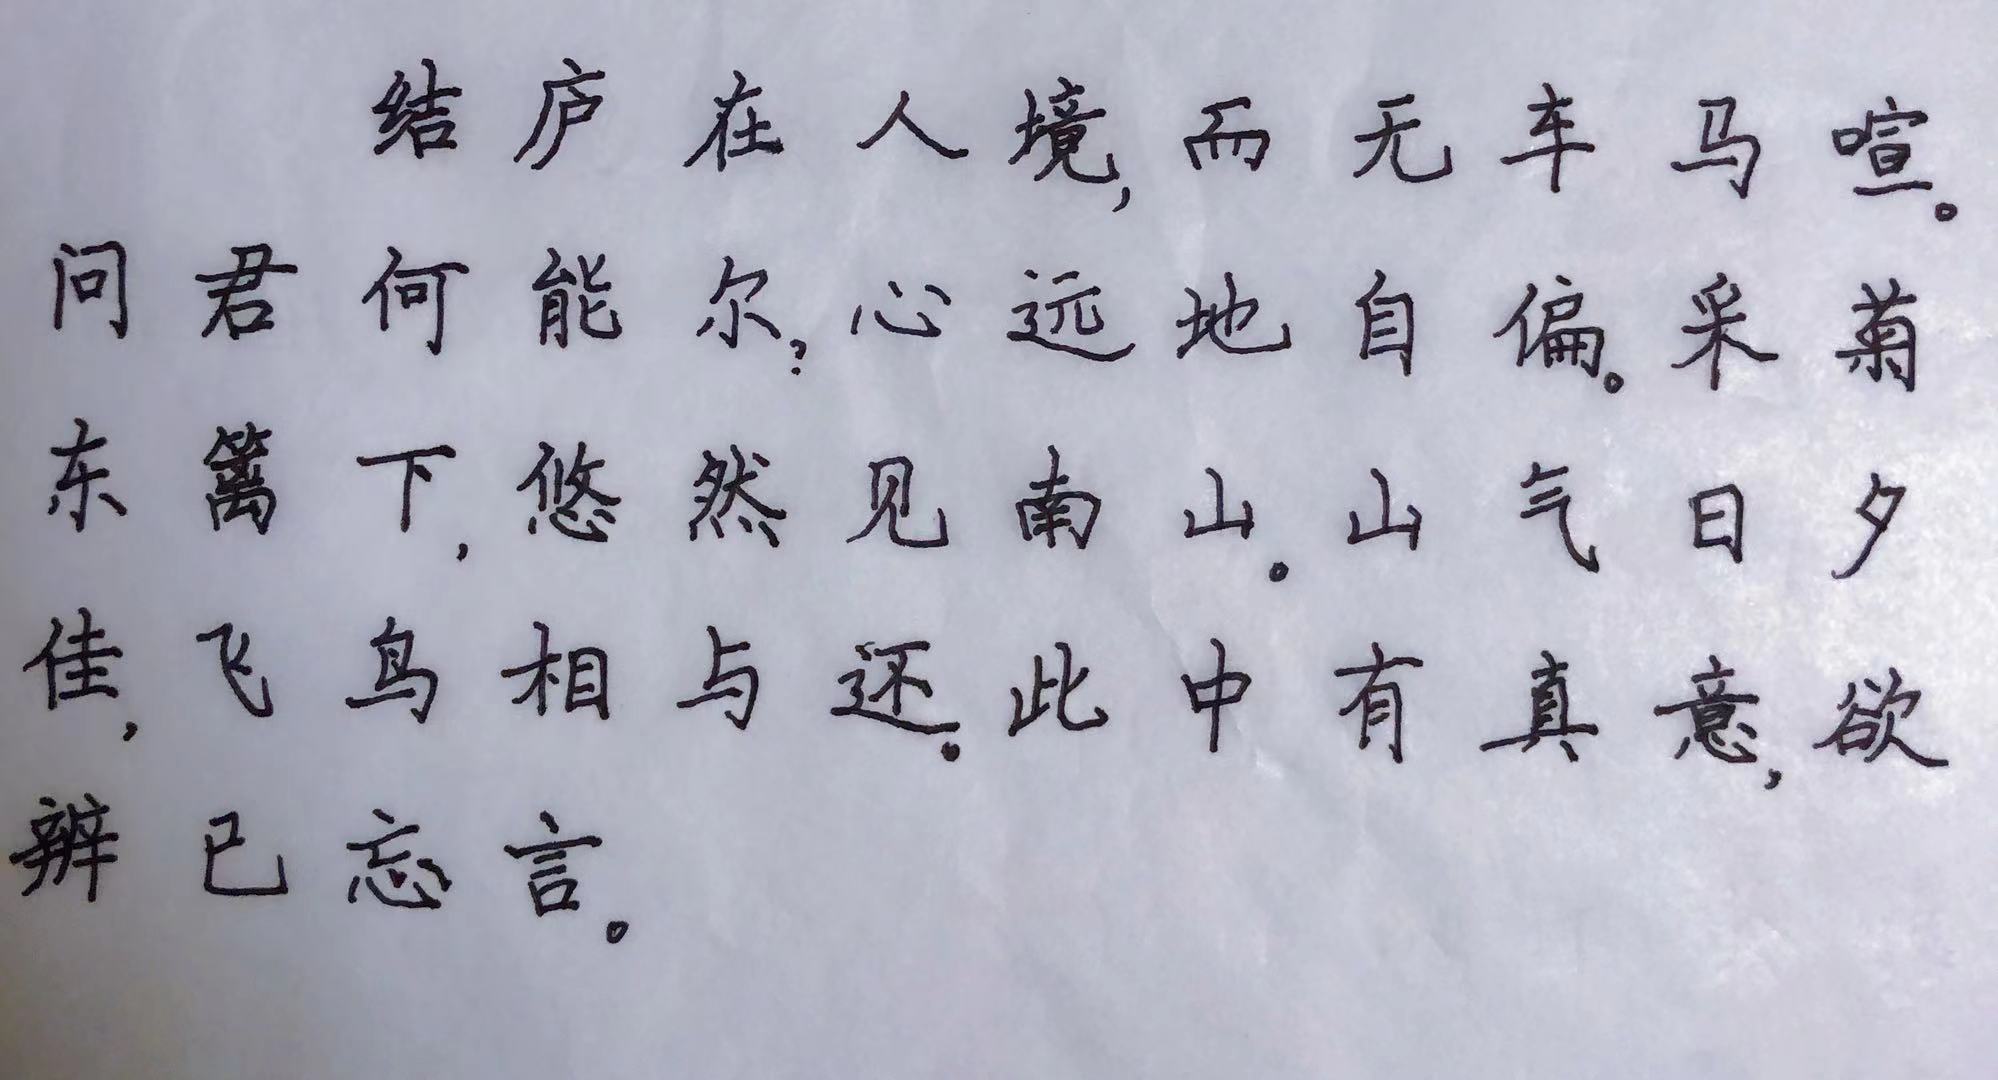 结庐在人境,而无车马喧。
问君何能尔?心远地自偏。采菊
东篱下,悠然见南山。山气日夕
佳,飞鸟相与还。此中有真意,欲
辨已忘言。